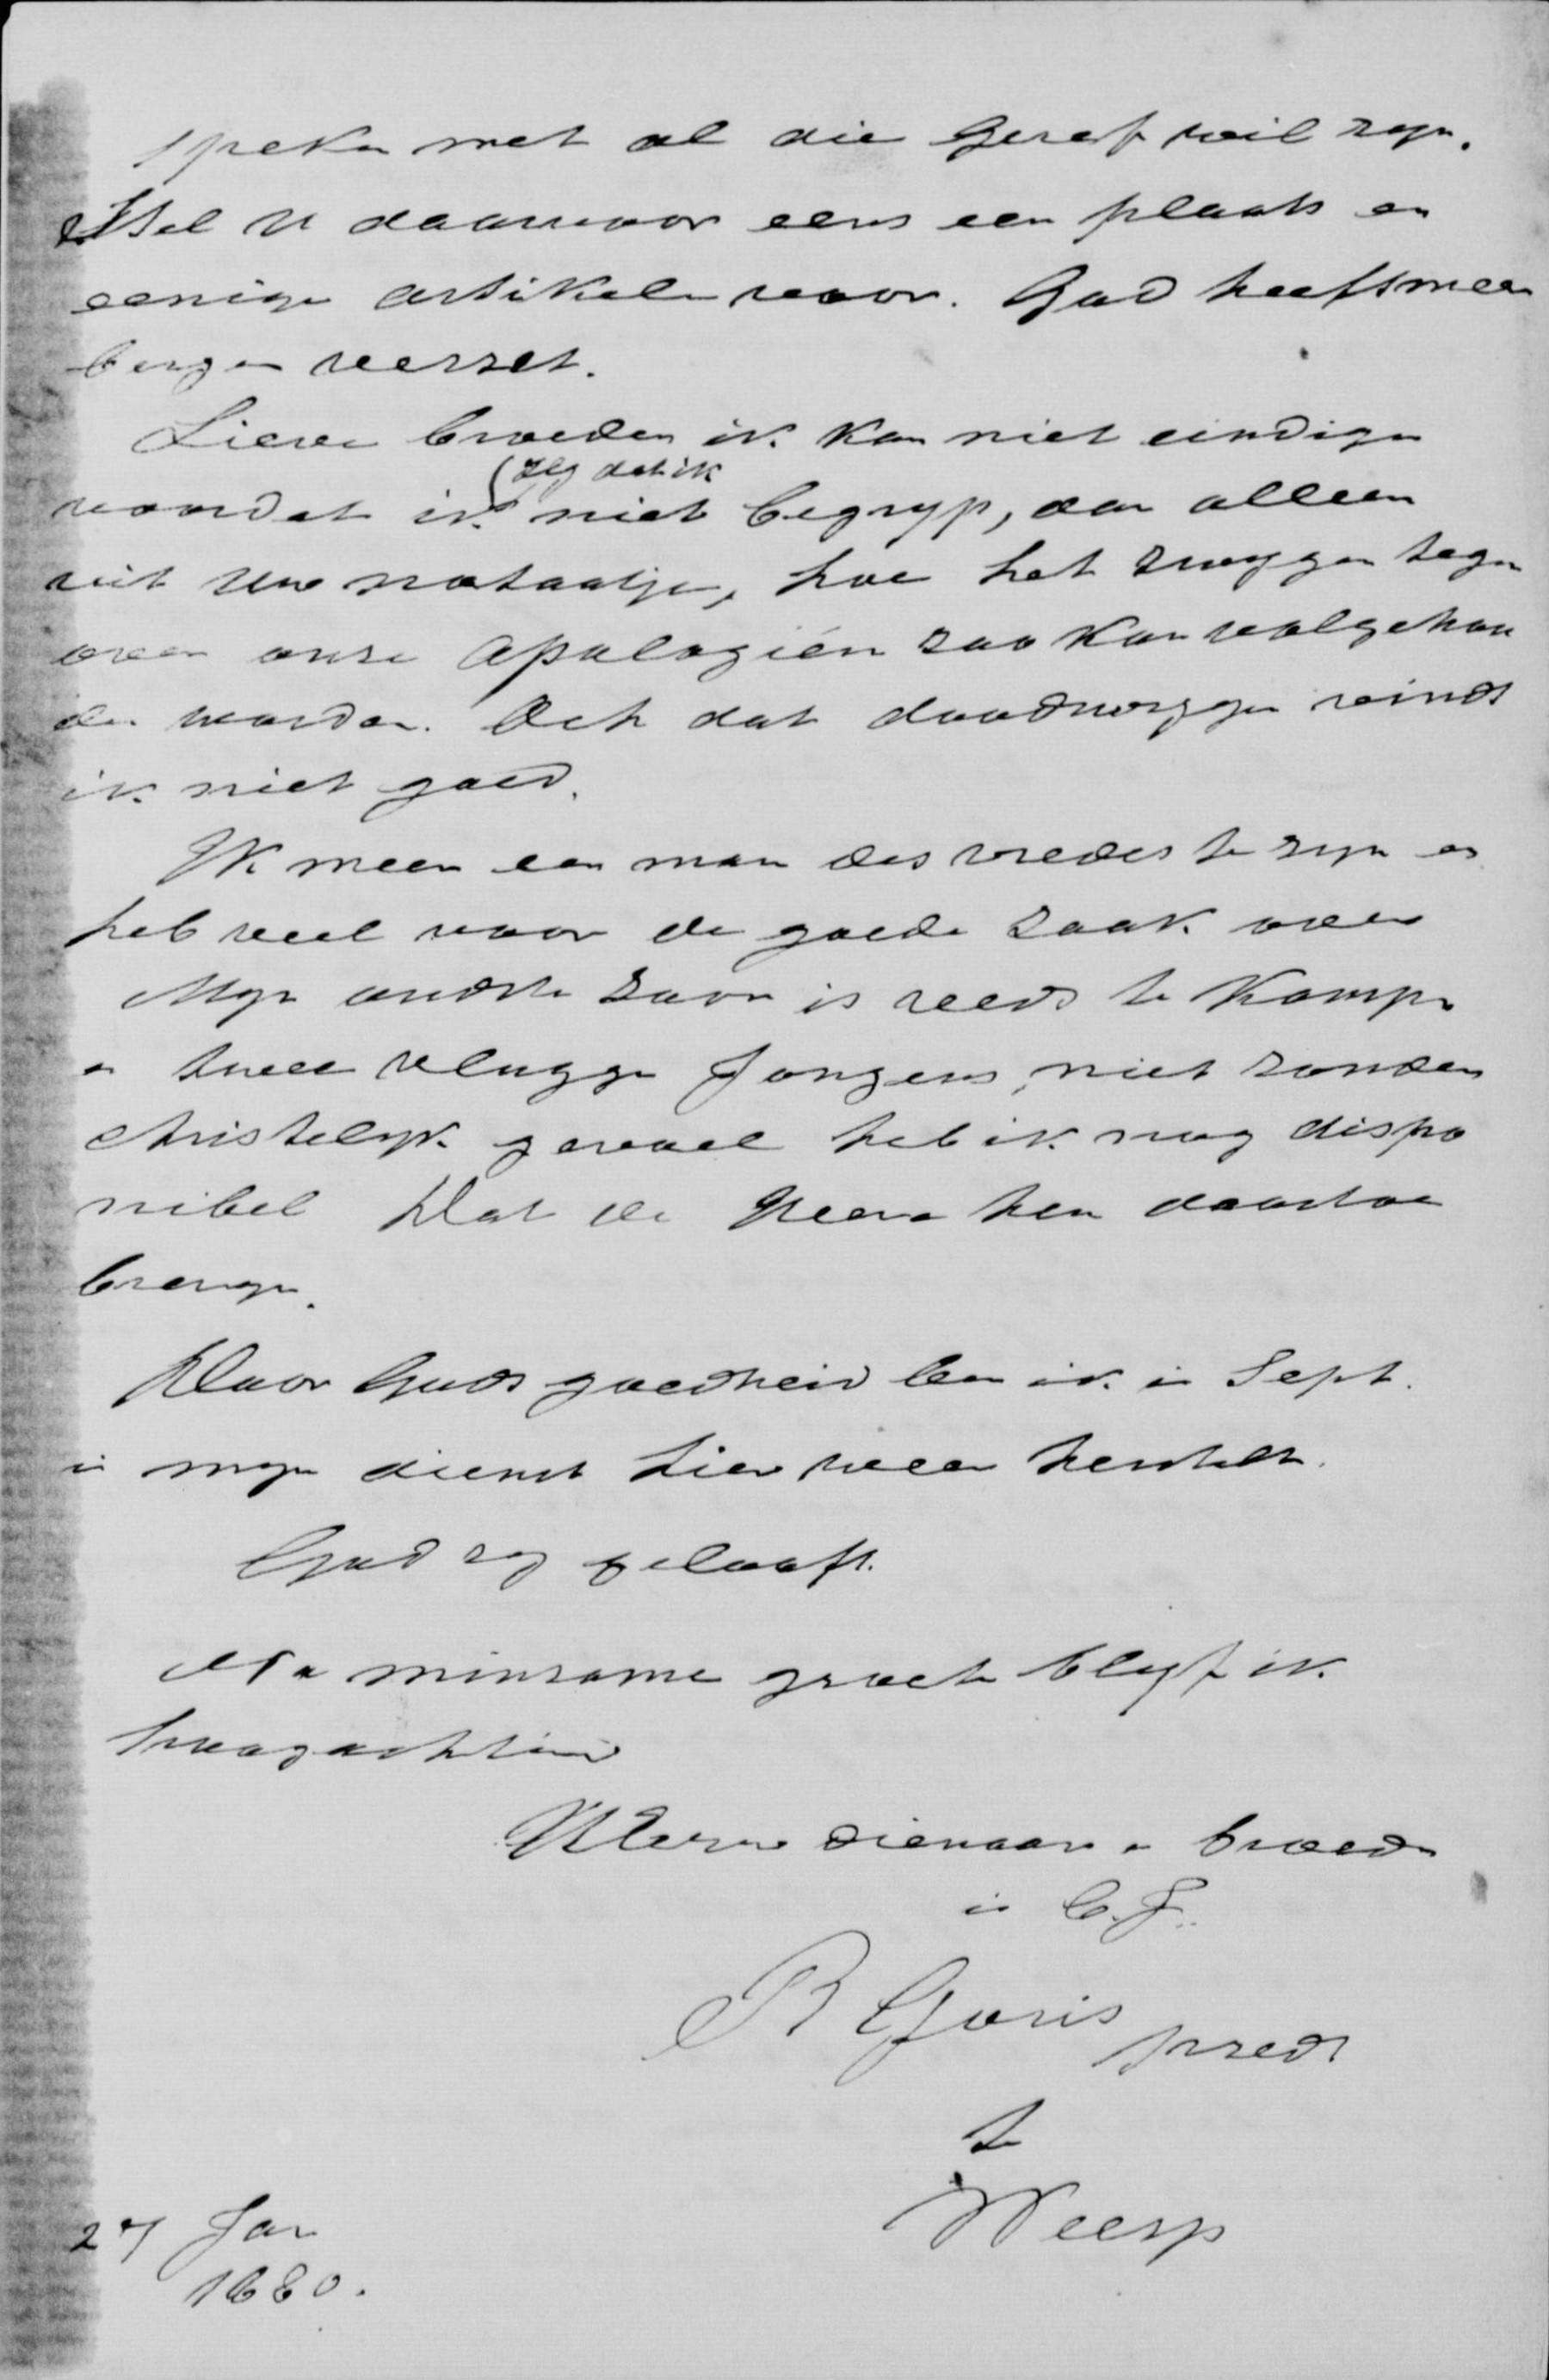 spreken met al die Geref wil zyn.
Stel U daarvoor eens een plaats en
eenige artikelen voor. God heeft meer
bergen verzet.
Lieve broeder ik kan niet eindigen
(zeg dat ik
voordat ik niet begryp, dan alleen
uit uw notaatje, hoe het zwygen tegen
over onze Apologiën zoo kan volgehou
den worden. Och dat doodzwygen vindt
ik niet goed.
Ik meen een man des vredes te zyn en
heb veel voor de goede zaak over
Myn oudste zoon is reeds te Kampen
en twee vlugge Jongens, niet zonder
christelyk gevoel heb ik nog dispo
nibel Dat de Heere hen daartoe
brenge.
Door Gods goedheid ben ik in Sept.
in myn dienst hier weer hersteld.
God zy geloofd.
Na minzame groete blyf ik
hoogachtend
UEerw dienaar en broeder
in C. J.
R Goris
pred
te
Weesp
27 Jan
1880.